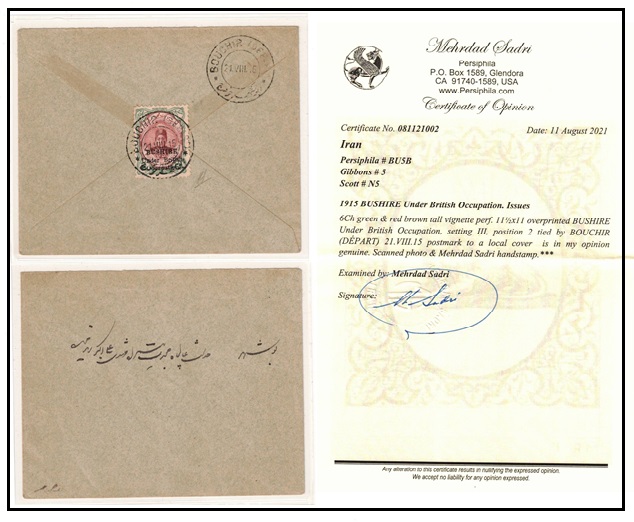 BOUCHIR (DÉPART)
21.VIII.15
BOUCHIR (DÉPART)
21.VIII.15
BUSHIRE
Under British
Occupation.
بوشهر
Mehrdad Sadri
Persiphila
P.O. Box 1589, Glendora
CA 91740-1589, USA
www.Persiphila.com
Certificate of Opinion
Certificate No. 081121002 Date: 11 August 2021
Iran
Persiphila # BU5B
Gibbons # 5
Scott # N5
1915 BUSHIRE Under British Occupation. Issues
6Ch green & red brown tall vignette perf. 11½x11 overprinted BUSHIRE
Under British Occupation. setting III, position 2 tied by BOUCHIR
(DÉPART) 21.VIII.15 postmark to a local cover is in my opinion
genuine. Scanned photo & Mehrdad Sadri handstamp.***
Examined by: Mehrdad Sadri
Signature: M. Sadri
Any alteration to this certificate results in nullifying the expressed opinion.
We accept no liability for any opinion expressed.